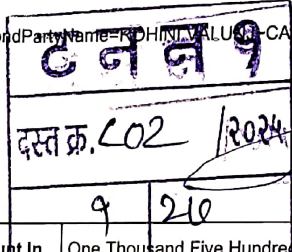 ondPartyName=ROHINI VALU
ट न न १
दस्त क्र. ८०२ / २०२५
१ २७
unt In One Thousand Five Hundred